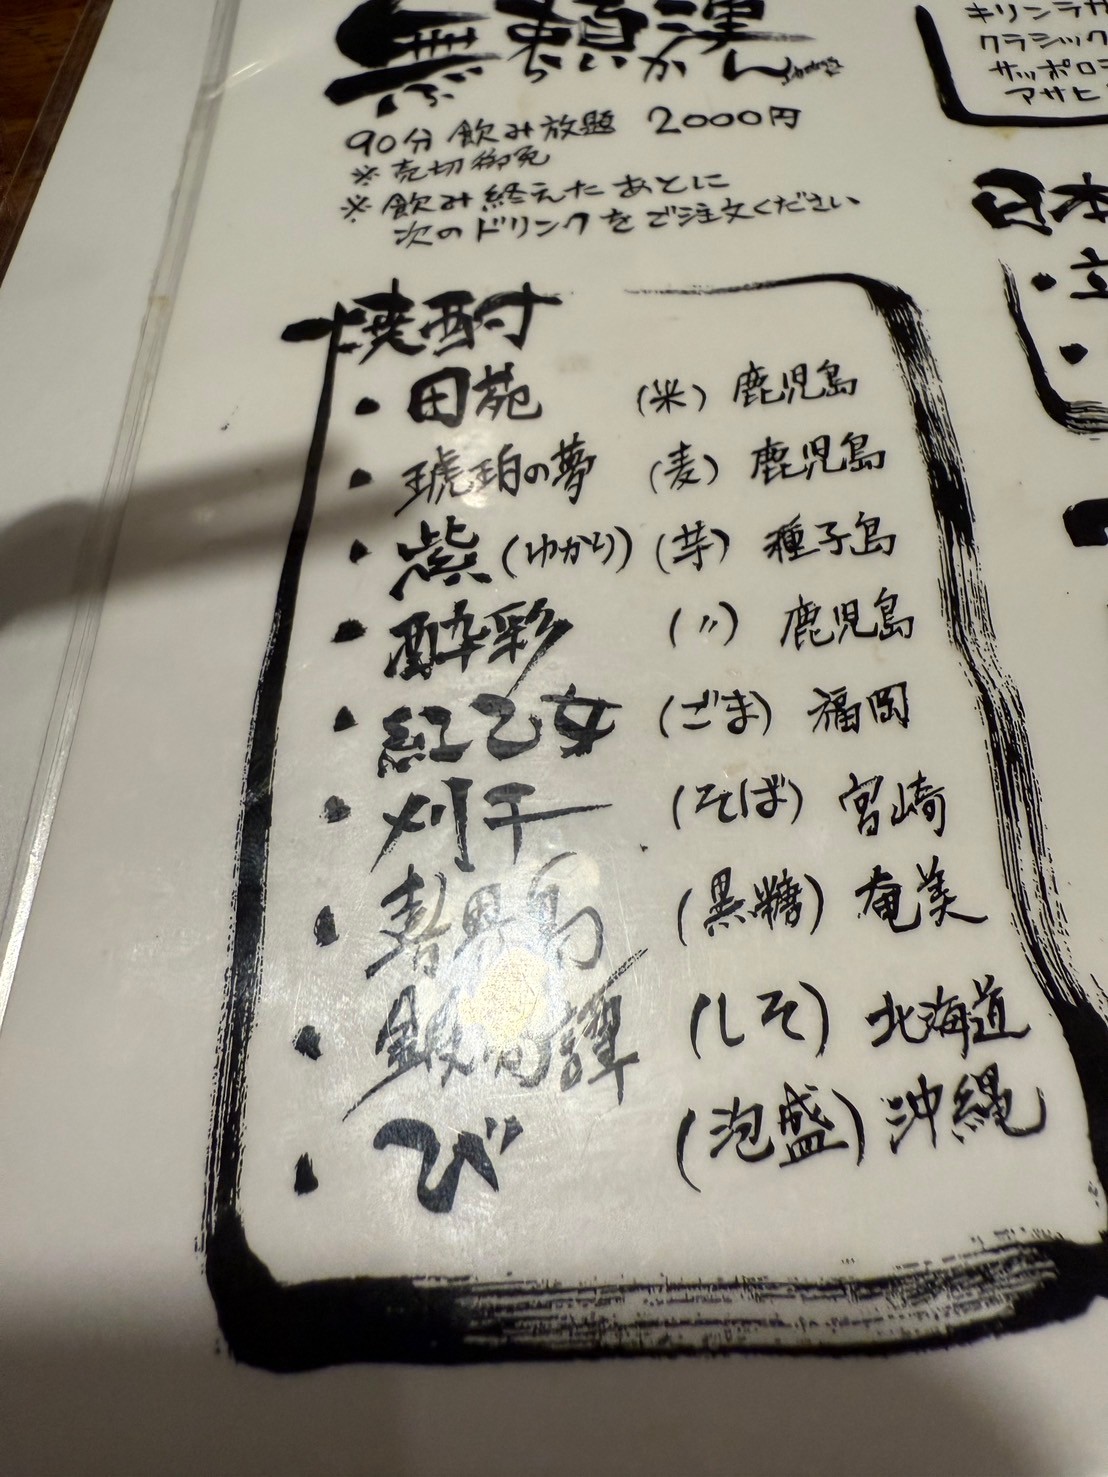 無頼漢
ぶらいかん
90分 飲み放題 2000円
※売切御免
※飲み終えたあとに
次のドリンクをご注文ください
焼酎
・田苑 (米) 鹿児島
・琥珀の夢 (麦) 鹿児島
・紫(ゆかり) (芋) 種子島
・酔彩 (〃) 鹿児島
・紅乙女 (ごま) 福岡
・刈干 (そば) 宮崎
・喜界島 (黒糖) 奄美
・鍛高譚 (しそ) 北海道
・び (泡盛) 沖縄
キリンラガ
クラシック
サッポロ
アサヒ
日本
・立